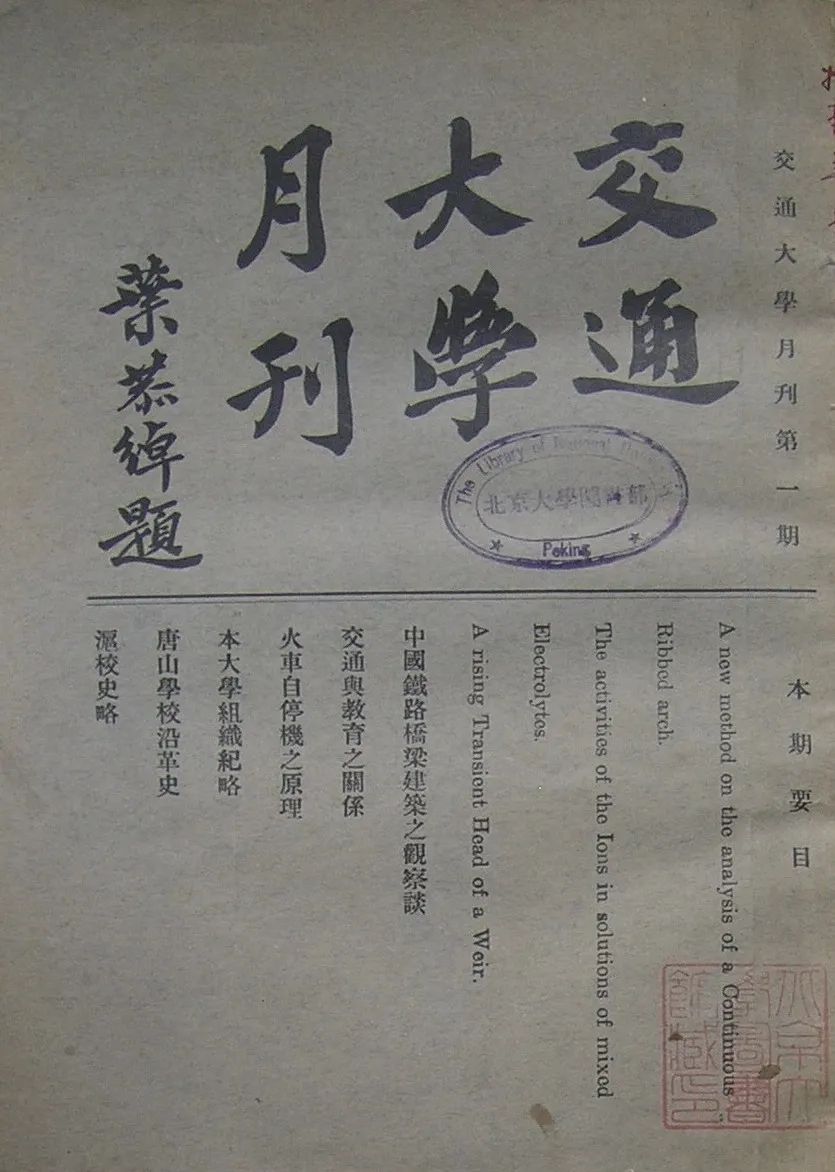 交通大學月刊第一期
交通
大學
月刊
葉恭綽題
The Library of National
北京大學圖書部
Peking
本期要目
A new method on the analysis of a Continuous
Ribbed arch.
The activities of the Ions in solutions of mixed
Electrolytes.
A rising Transient Head of a Weir.
中國鐵路橋梁建築之觀察談
交通與教育之關係
火車自停機之原理
本大學組織紀略
唐山學校沿革史
滬校史略
北京大
學圖書
館藏印